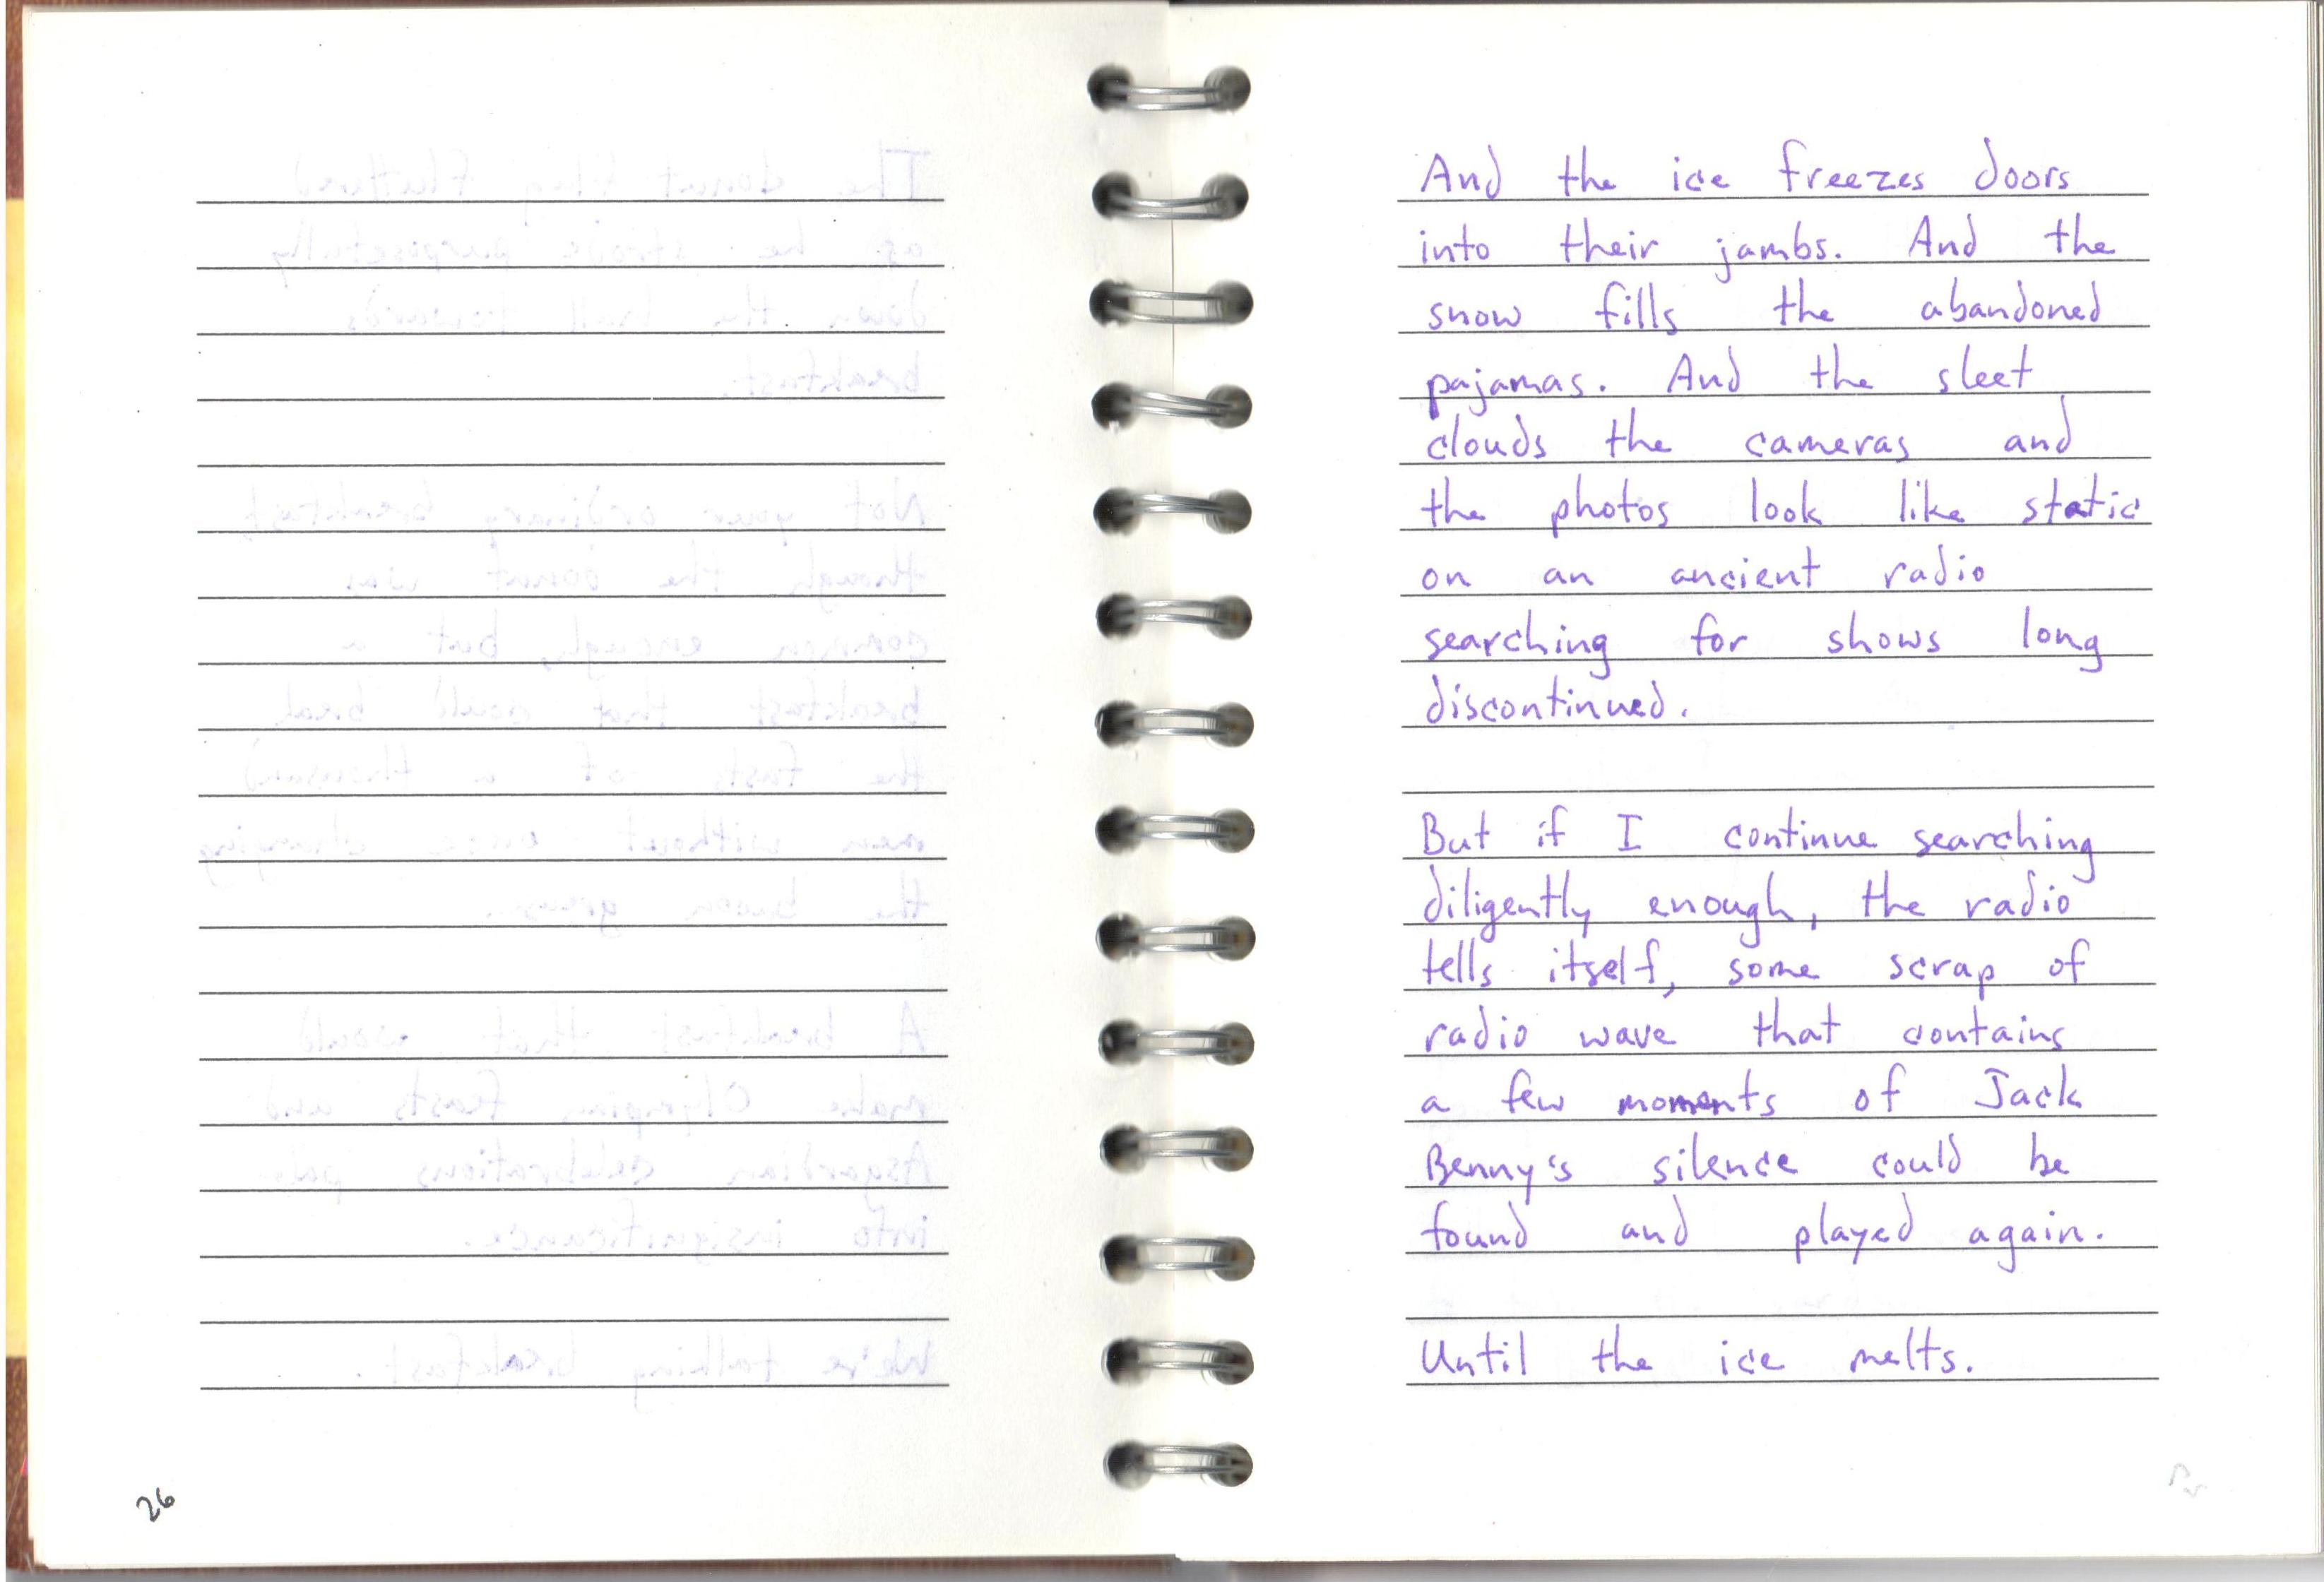 26
And the ice freezes doors
into their jambs. And the
snow fills the abandoned
pajamas. And the sleet
clouds the cameras and
the photos look like static
on an ancient radio
searching for shows long
discontinued.
But if I continue searching
diligently enough, the radio
tells itself, some scrap of
radio wave that contains
a few moments of Jack
Benny's silence could be
found and played again.
Until the ice melts.